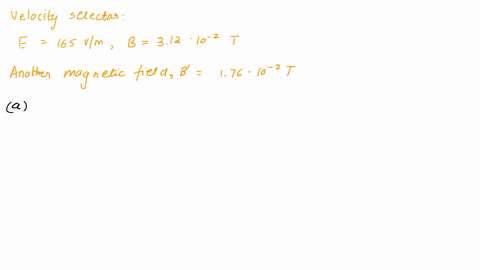 Velocity selector:
E = 165 V/m, B = 3.12 · 10⁻² T
Another magnetic field, B' = 1.76 · 10⁻² T
(a)